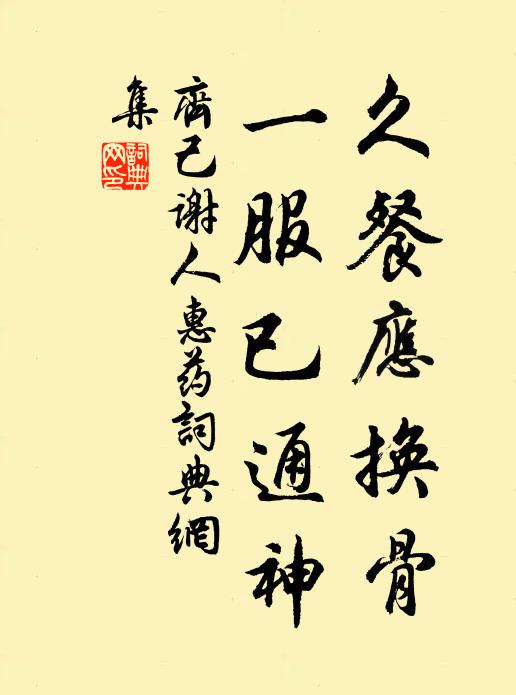 久餐應換骨
一服已通神
齊己謝人惠药詞典網
集
詞典
网印